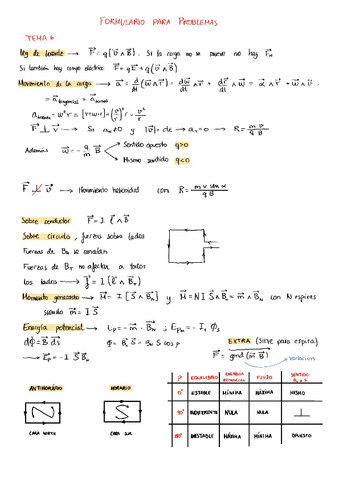 FORMULARIO PARA PROBLEMAS
TEMA 6
Ley de Lorentz → F⃗ = q(v⃗ ∧ B⃗). Si la carga no se mueve no hay F⃗m
Si también hay campo eléctrico F⃗ = qE⃗ + q(v⃗ ∧ B⃗)
Movimiento de la carga → a⃗ = d/dt (w⃗ ∧ r⃗) = dw⃗/dt ∧ r⃗ + dr⃗/dt ∧ w⃗ = α⃗ ∧ r⃗ + w⃗ ∧ v⃗ =
= a⃗ tangencial + a⃗ normal
a normal = w² r = [v = w r] = (v/r)² r = v²/r
F⃗ ⊥ v⃗ → Si an ≠ 0 y |v⃗| = cte → at = 0 → R = m v / q B
Además w⃗ = - q/m B⃗
Sentido opuesto q>0
Mismo sentido q<0
Movimiento helicoidal con R = m v sen α / q B
Sobre conductor F⃗ = I ℓ⃗ ∧ B⃗
Sobre circuito, fuerzas sobre lados
Fuerzas de Bn se cancelan
Fuerzas de BT no afectan a todos
los lados → f⃗ = I (ℓ⃗ ∧ B⃗)
Momento generado → M⃗ = I [S⃗ ∧ B⃗o] y M⃗ = N I S⃗ ∧ B⃗o = m⃗ ∧ B⃗o con N espiras
siendo m⃗ = I S⃗
Energía potencial → Ep = - m⃗ · B⃗o
dɸ = B⃗ ds⃗
ɸ = B⃗o S⃗ = Bo S cos φ
→ Ep = - I S⃗ B⃗o
EXTRA (sirve para espira)
F⃗ = grad (m⃗ B⃗)
variación
ANTIHORARIO
HORARIO
N
S
CARA NORTE
CARA SUR
φ EQUILIBRIO ENERGÍA POTENCIAL FLUJO SENTIDO
0° ESTABLE MÍNIMA MÁXIMA MISMO
90° INDIFERENTE NULA NULA ⊥
180° INESTABLE MÁXIMA MÍNIMA OPUESTO